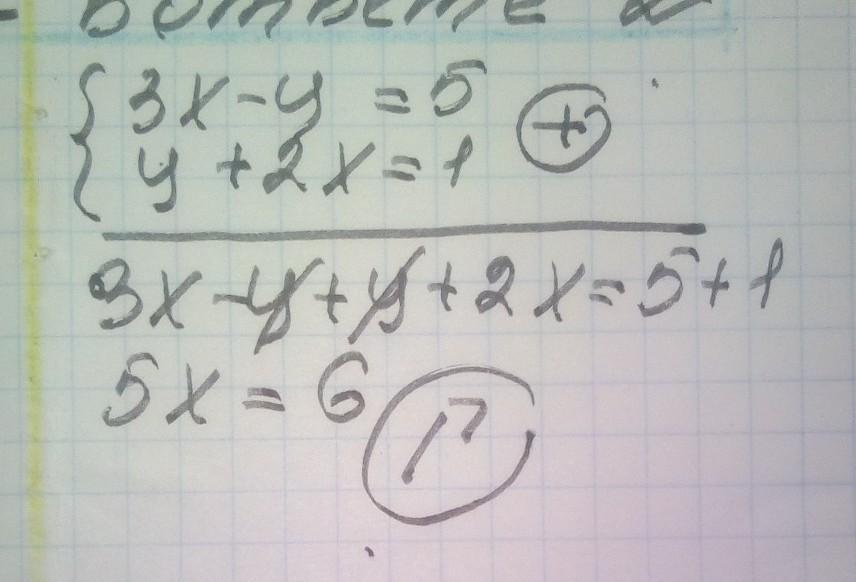 { 3x - y = 5
y + 2x = 1 (+)
3x - y + y + 2x = 5 + 1
5x = 6 Г